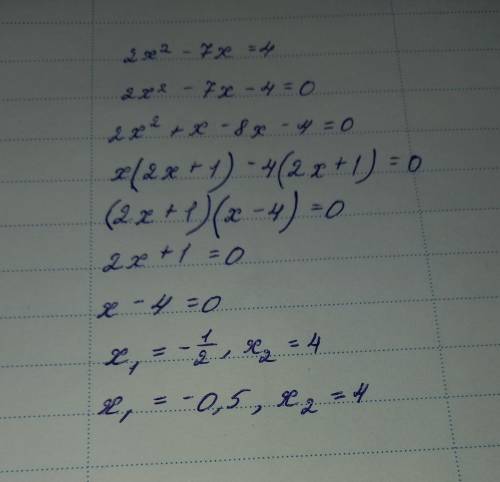 2x² - 7x = 4
2x² - 7x - 4 = 0
2x² + x - 8x - 4 = 0
x(2x + 1) - 4(2x + 1) = 0
(2x + 1)(x - 4) = 0
2x + 1 = 0
x - 4 = 0
x₁ = -1/2, x₂ = 4
x₁ = -0,5, x₂ = 4